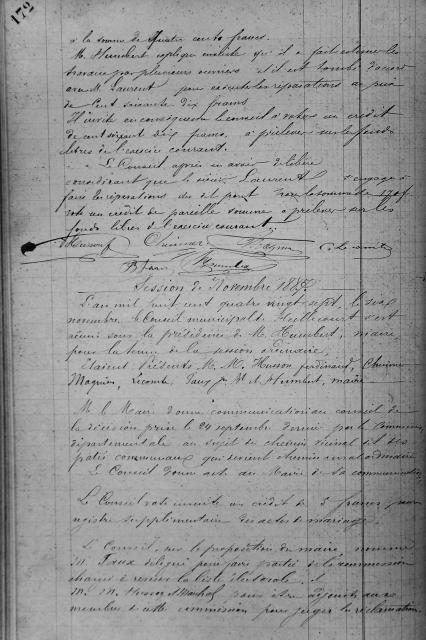 172
à la somme de quatre cents francs.
M. Humbert explique ensuite qu'il a fait estimer les
travaux par plusieurs ouvriers et il est tombé d'accord
avec M. Laurent pour exécuter les réparations au prix
de Cent soixante dix francs
Il invite en conséquence le conseil à voter un crédit
de cent soixante dix francs, à prélever sur les fonds
libres de l'exercice courant.
Le Conseil après en avoir délibéré
considérant que le sieur Laurent s'engage à
faire les réparations du dit pont pour la somme de 170f
vote un crédit de pareille somme à prélever sur les
fonds libres de l'exercice courant.
Husson f Chuinar Magnin Lecomte
Humbert
Session de Novembre 1887
L'an mil huit cent quatre vingt sept, le six
novembre, le Conseil municipal de s'est
réuni sous la présidence de M. Humbert, maire,
pour la tenue de la session ordinaire,
Etaient présents M. M. Husson ferdinand,
Magnin, Lecomte, et Humbert, maire
M. le Maire donne communication au conseil de
la décision prise le 24 septembre dernier par la Commission
départementale au sujet du chemin vicinal et des
patis communaux qui servent chemin rural ordinaire
Le Conseil donne acte au Maire de sa communication
Le Conseil vote ensuite un crédit de 5 francs pour
registre supplémentaire des actes de mariage.
Le Conseil, sur la proposition du maire, nomme
M. délégué pour faire partie de la commission
chargée de reviser la liste électorale. et
M. M. Husson pour être adjoints aux
membres de cette commission pour juger les réclamations